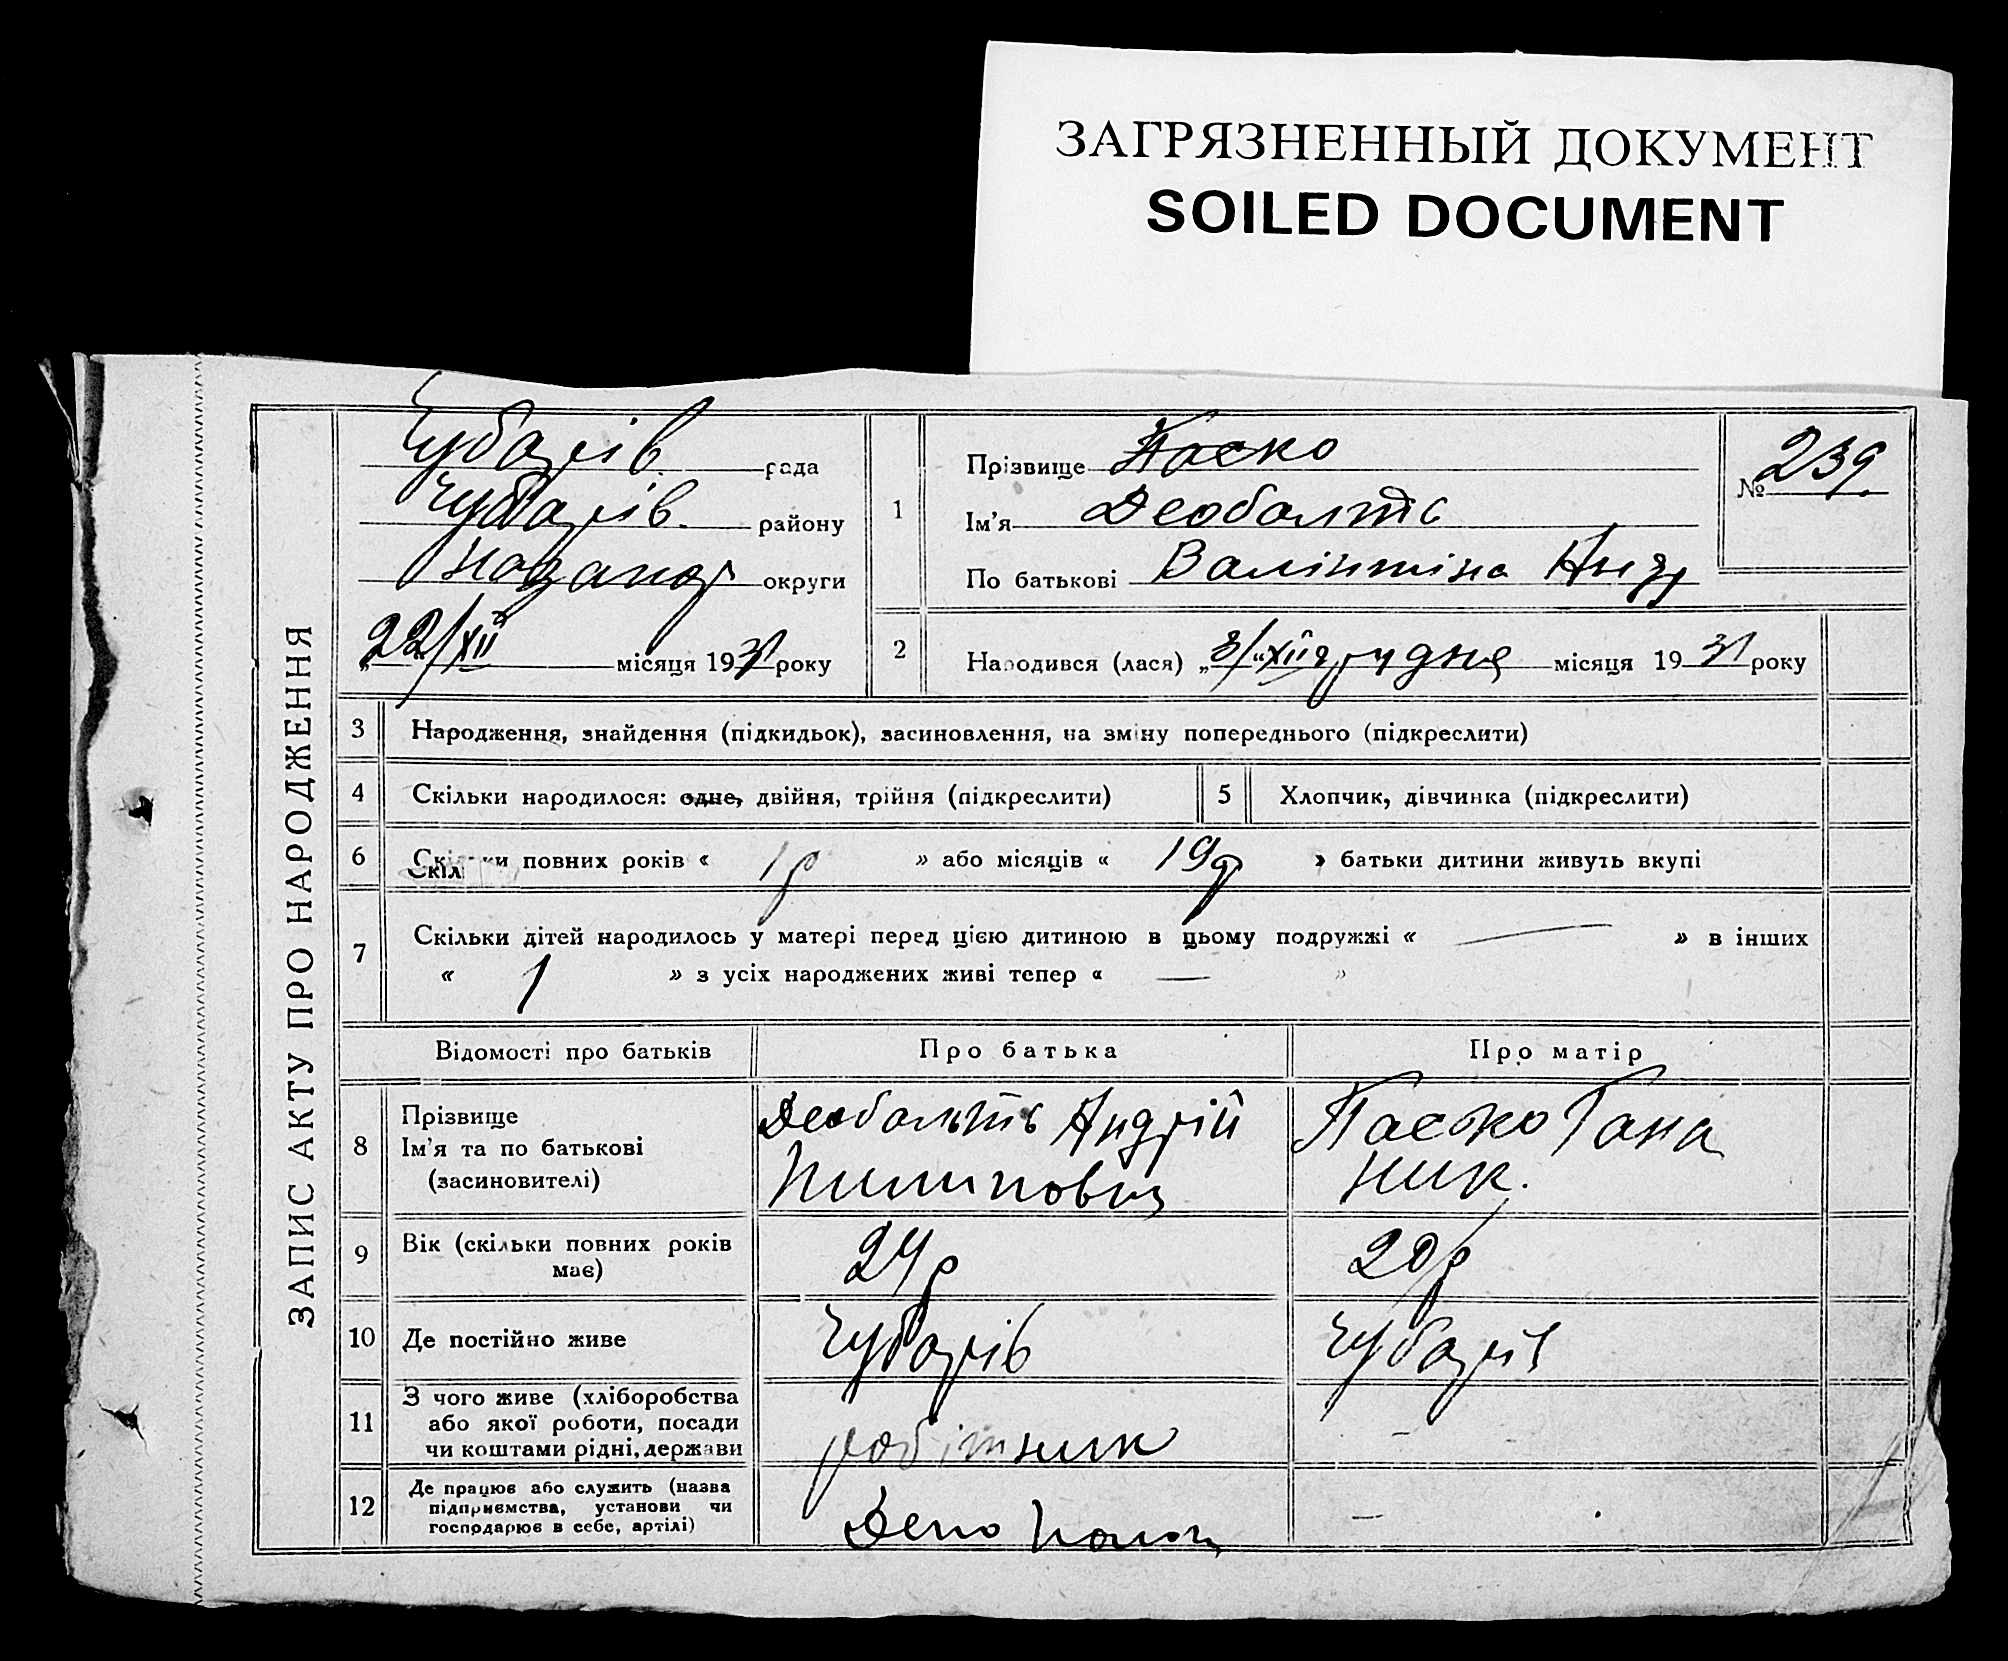 ЗАГРЯЗНЕННЫЙ ДОКУМЕНТ
SOILED DOCUMENT
ЗАПИС АКТУ ПРО НАРОДЖЕННЯ
Чубарів. рада
Чубарів. району
округи
22/XII місяця 1931 року
1
Прізвище Паско
Ім'я Деобальть
По батькові Валінтіна Андр
№ 239
2
Народився (лася) „3/"XII грудня місяця 1931 року
3 Народження, знайдення (підкидьок), засиновлення, на зміну попереднього (підкреслити)
4 Скільки народилося: одне, двійня, трійня (підкреслити)
5 Хлопчик, дівчинка (підкреслити)
6 Скільки повних років « 1р » або місяців « 19 » батьки дитини живуть вкупі
7 Скільки дітей народилось у матері перед цією дитиною в цьому подружжі « — » в інших
« 1 » з усіх народжених живі тепер « — »
Відомості про батьків
Про батька
Про матір
8
Прізвище
Ім'я та по батькові
(засиновителі)
Деобальть Андрій
Пилипович
Паско Гана
Ник.
9
Вік (скільки повних років
має)
24р
20р
10 Де постійно живе
Чубарів
Чубарів
11
З чого живе (хліборобства
або якої роботи, посади
чи коштами рідні, держави
робітник
- -
12
Де працює або служить (назва
підприємства, установи чи
господарює в себе, артілі)
Депо Пологи
—